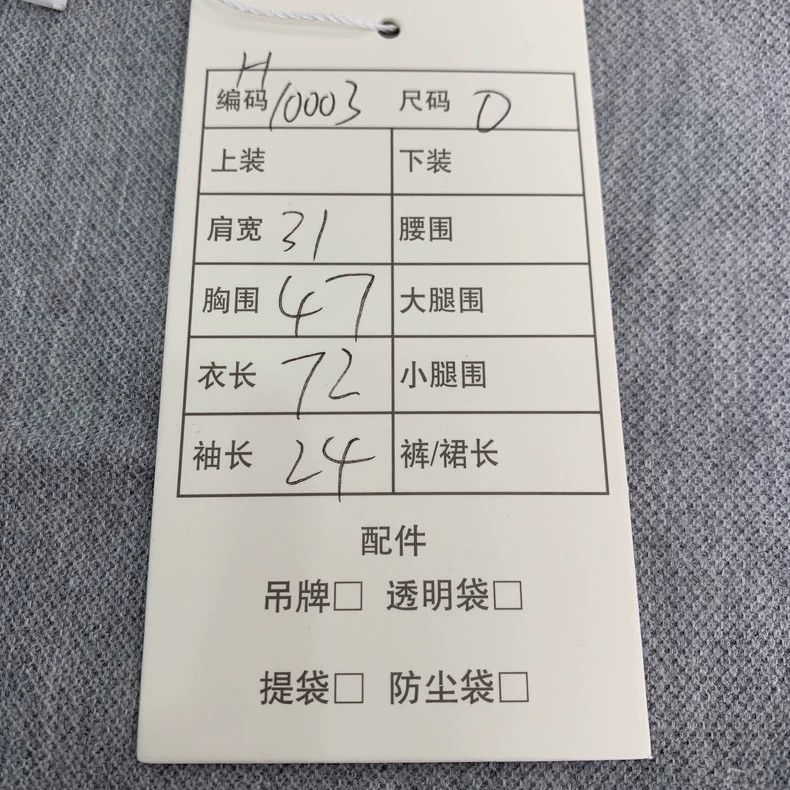 编码 H10003 尺码 0
上装 下装
肩宽 31 腰围
胸围 47 大腿围
衣长 72 小腿围
袖长 24 裤/裙长
配件
吊牌□ 透明袋□
提袋□ 防尘袋□